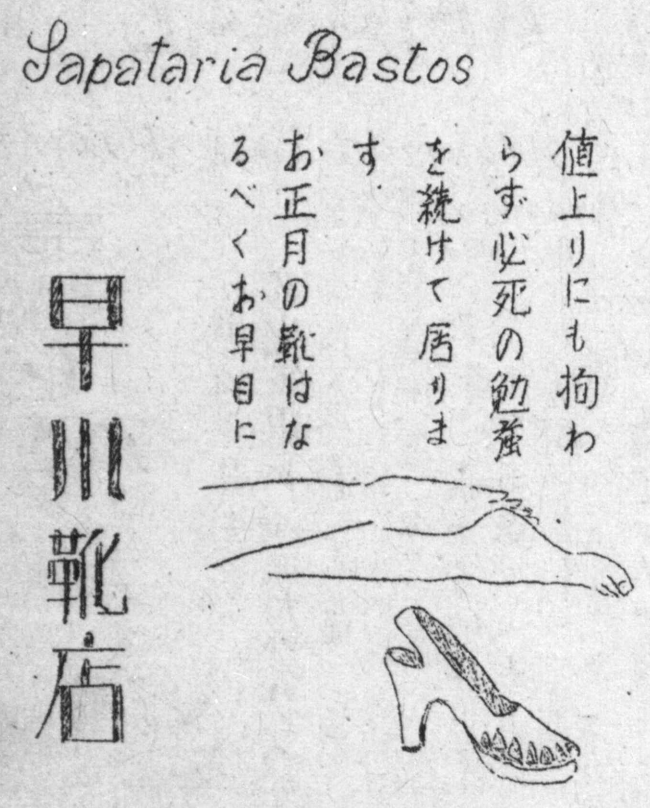 Sapataria Bastos
値上りにも拘わ
らず必死の勉強
を続けて居りま
す
お正月の靴はな
るべくお早目に
早川靴店